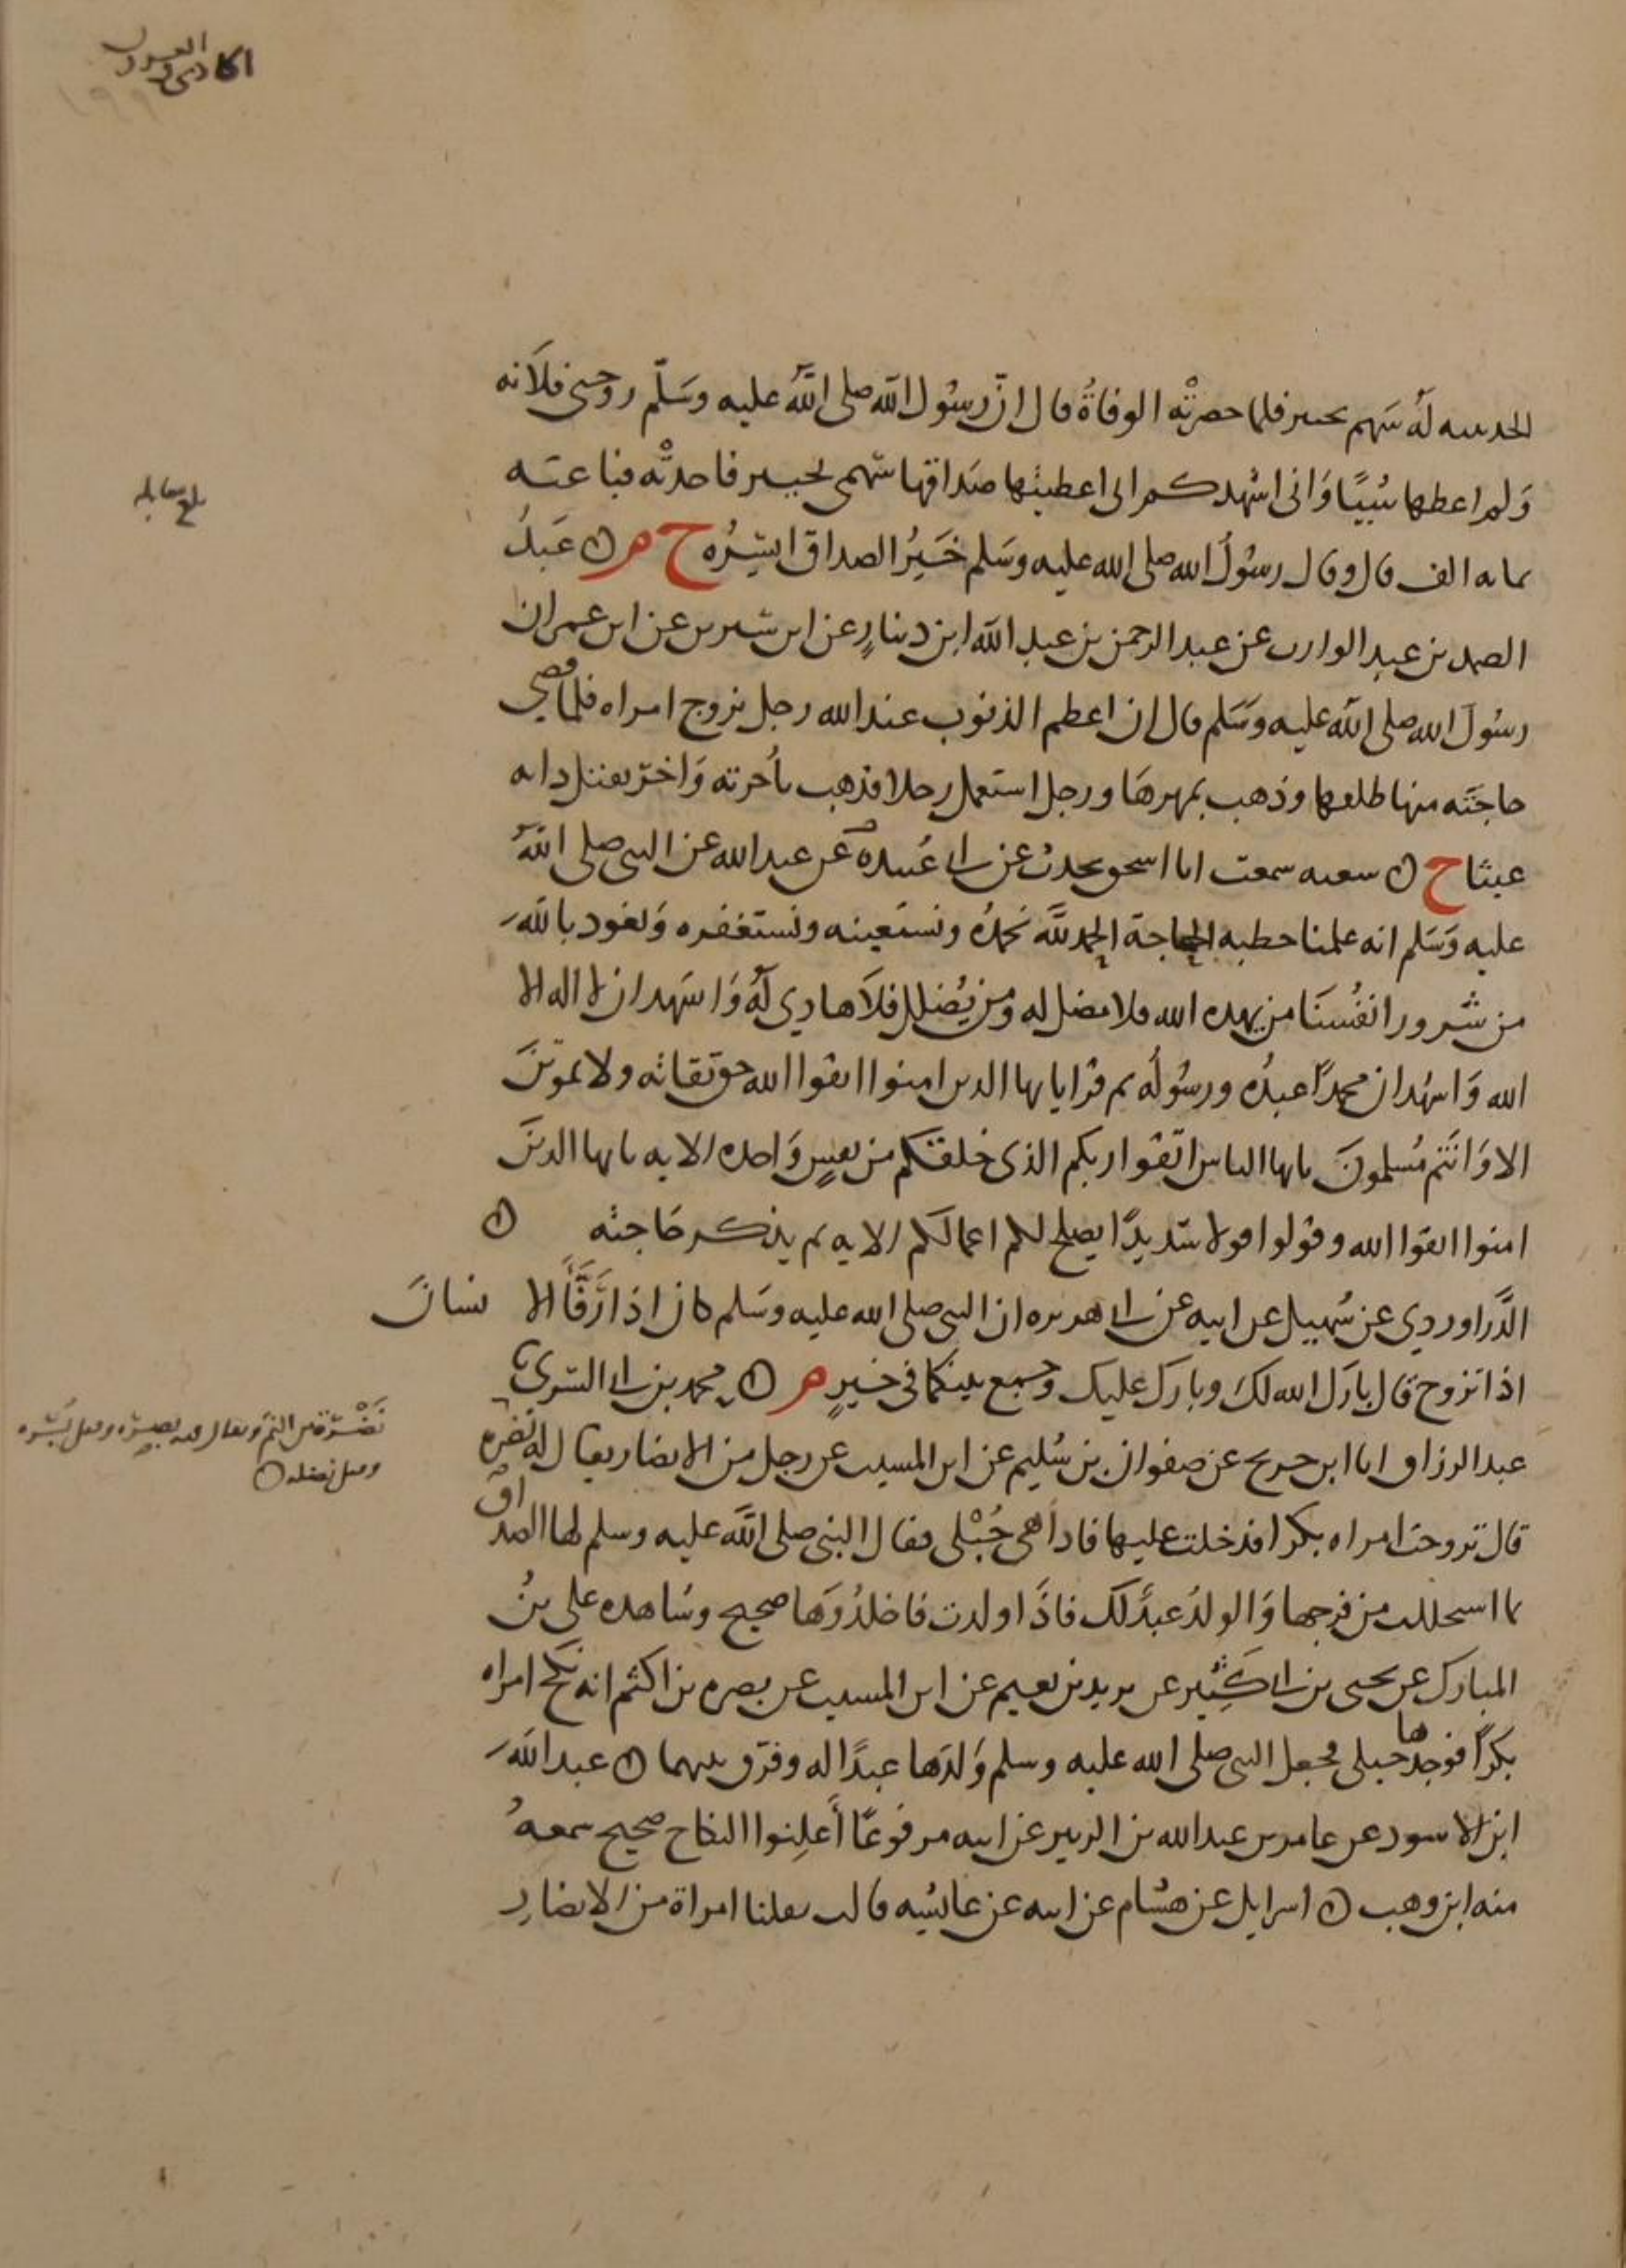 الحادي والعشرون
الحديبيه له سهم بخيبر فلما حضرته الوفاة قال ان رسول الله صلى الله عليه وسلم زوجني فلانه
ولم اعطها شيئا واني اشهدكم اني اعطيتها صداقها سهمي بخيبر فاخذته فباعته
بمايه الف قال وقال رسول الله صلى الله عليه وسلم خير الصداق ايسره خ م ه عبد
الصمد بن عبد الوارث عن عبد الرحمن بن عبد الله ابن دينار عن ابن سيرين عن ابن عمر ان
رسول الله صلى الله عليه وسلم قال ان اعظم الذنوب عند الله رجل تزوج امراه فلما قضى
حاجته منها طلقها وذهب بمهرها ورجل استعمل رجلا فذهب باجرته واخر يقتل دابه
عبثا خ ه شعبه سمعت ابا اسحق يحدث عن ابي عبيدة عن عبد الله عن النبي صلى الله
عليه وسلم انه علمنا خطبه الحاجة الحمد لله نحمده ونستعينه ونستغفره ونعوذ بالله
من شرور انفسنا من يهده الله فلا مضل له ومن يضلل فلا هادي له واشهد ان لا اله الا
الله واشهد ان محمدا عبده ورسوله ثم قرا يايها الذين امنوا اتقوا الله حق تقاته ولا تموتن
الا وانتم مسلمون يايها الناس اتقوا ربكم الذي خلقكم من نفس واحده الايه يايها الذين
امنوا اتقوا الله وقولوا قولا سديدا يصلح لكم اعمالكم الايه ثم يذكر حاجته ه
الدراوردي عن سهيل عن ابيه عن ابي هريره ان النبي صلى الله عليه وسلم كان اذا رفأ الا نسان
اذا تزوج قال بارك الله لك وبارك عليك وجمع بينكما في خير م ه محمد بن ابي السري
عبد الرزاق انا ابن جريج عن صفوان بن سليم عن ابن المسيب عن رجل من الانصار يقال له نضره
قال تزوجت امراه بكرا فدخلت عليها فاذا هي حبلى فقال النبي صلى الله عليه وسلم لها الصداق
بما استحللت من فرجها والولد عبد لك فاذا ولدت فاجلدوها صحيح وشاهده علي بن
المبارك عن يحيى بن ابي كثير عن يزيد بن نعيم عن ابن المسيب عن بصره بن اكثم انه نكح امراه
بكرا فوجدها حبلى فجعل النبي صلى الله عليه وسلم ولدها عبدا له وفرق بينهما ه عبد الله
ابن الاسود عن عامر بن عبد الله بن الزبير عن ابيه مرفوعا أعلنوا النكاح صحيح سمعه
منه ابن وهب ه اسرايل عن هشام عن ابيه عن عائشه قالت نقلنا امراة من الانصار
بلغ مقابله
نضرة ويقال فيه بصره وقيل
وقيل نضله ه